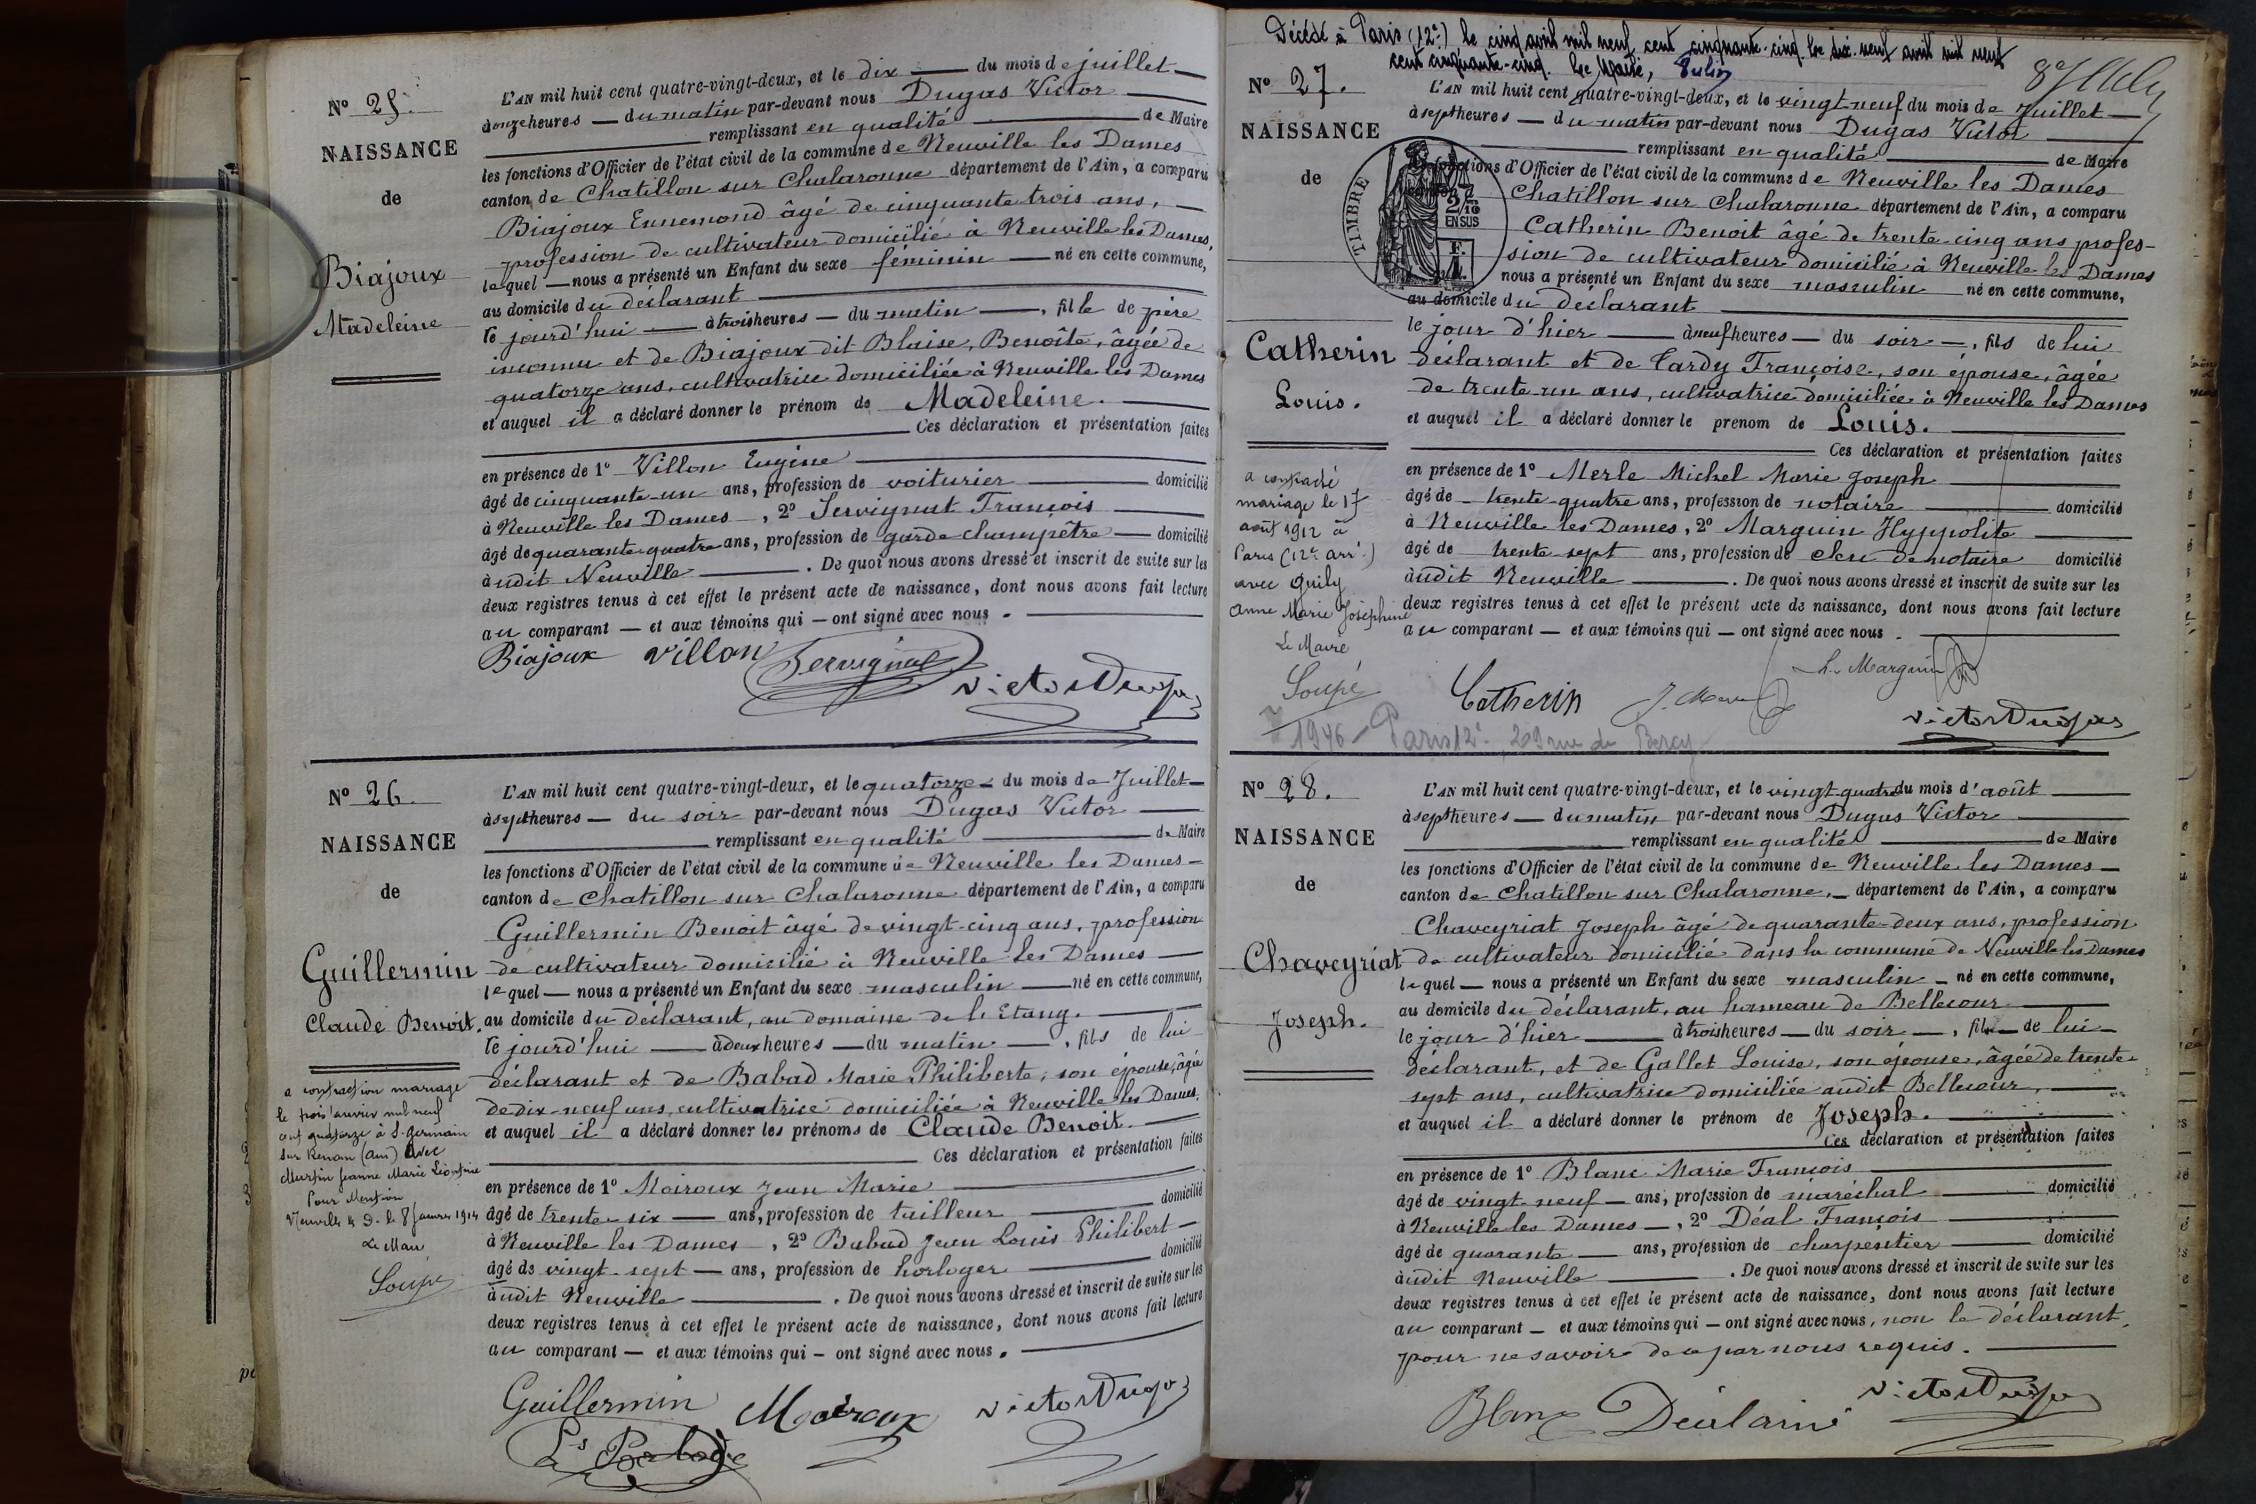 Nº 25.
NAISSANCE
de
Biajoux
Madeleine
L'AN mil huit cent quatre-vingt-deux, et le dix du mois de juillet
à onze heures du matin par-devant nous Dugas Victor
remplissant en qualité de Maire
les fonctions d'Officier de l'état civil de la commune de Neuville les Dames
canton de Chatillon sur Chalaronne département de l'Ain, a comparu
Biajoux Ennemond âgé de cinquante trois ans,
profession de cultivateur domicilié à Neuville les Dames,
lequel nous a présenté un Enfant du sexe féminin né en cette commune,
au domicile du déclarant
le jourd'hui à trois heures du matin, fille de père
inconnu et de Biajoux dit Blaise, Benoîte, âgée de
quatorze ans, cultivatrice domiciliée à Neuville les Dames
et auquel il a déclaré donner le prénom de Madeleine.
Ces déclaration et présentation faites
en présence de 1º Villon Eugène
âgé de cinquante-un ans, profession de voiturier domicilié
à Neuville les Dames, 2º Servignat François
âgé de quarante-quatre ans, profession de garde champêtre domicilié
à udit Neuville. De quoi nous avons dressé et inscrit de suite sur les
deux registres tenus à cet effet le présent acte de naissance, dont nous avons fait lecture
au comparant et aux témoins qui ont signé avec nous.
Biajoux Villon Servignat Victor Dugas
Nº 26.
NAISSANCE
de
Guillermin
Claude Benoit.
a contracté mariage
le trois janvier mil neuf
cent quatorze à St Germain
sur Renon (Ain) avec
Murtin Jeanne Marie Léontine
Pour Mention
Neuville les D. le 8 Janvier 1914
Le Maire
Soupé
L'AN mil huit cent quatre-vingt-deux, et le quatorze du mois de Juillet
à sept heures du soir par-devant nous Dugas Victor
remplissant en qualité de Maire
les fonctions d'Officier de l'état civil de la commune de Neuville les Dames
canton de Chatillon sur Chalaronne département de l'Ain, a comparu
Guillermin Benoit âgé de vingt-cinq ans, profession
de cultivateur domicilié à Neuville les Dames
lequel nous a présenté un Enfant du sexe masculin né en cette commune,
au domicile du déclarant, au domaine de l'Etang.
le jourd'hui à deux heures du matin, fils de lui
déclarant et de Babad Marie Philiberte, son épouse, âgée
de dix-neuf ans, cultivatrice domiciliée à Neuville les Dames,
et auquel il a déclaré donner les prénoms de Claude Benoit.
Ces déclaration et présentation faites
en présence de 1º Moiroux Jean Marie
âgé de trente-six ans, profession de tailleur domicilié
à Neuville les Dames, 2º Babad Jean Louis Philibert
âgé de vingt-sept ans, profession de horloger domicilié
à udit Neuville. De quoi nous avons dressé et inscrit de suite sur les
deux registres tenus à cet effet le présent acte de naissance, dont nous avons fait lecture
au comparant et aux témoins qui ont signé avec nous.
Guillermin Moiroux Victor Dugas
Ls Babad
Décédé à Paris (12e) le cinq avril mil neuf cent cinquante-cinq. Le dix-neuf avril mil neuf
cent cinquante-cinq. Le Maire,
Nº 27.
NAISSANCE
de
TIMBRE
2/10
EN SUS
Catherin
Louis.
a contracté
mariage le 17
août 1912 à
Paris (12e arrt.)
avec Guily
Anne Marie Joséphine
Le Maire
Soupé
L'AN mil huit cent quatre-vingt-deux, et le vingt-neuf du mois de Juillet
à sept heures du matin par-devant nous Dugas Victor
remplissant en qualité de Maire
fonctions d'Officier de l'état civil de la commune de Neuville les Dames
canton de Chatillon sur Chalaronne département de l'Ain, a comparu
Catherin Benoit âgé de trente-cinq ans profes-
sion de cultivateur domicilié à Neuville les Dames
nous a présenté un Enfant du sexe masculin né en cette commune,
au domicile du déclarant
le jour d'hier à neuf heures du soir, fils de lui
déclarant et de Tardy Françoise, son épouse, âgée
de trente-un ans, cultivatrice domiciliée à Neuville les Dames
et auquel il a déclaré donner le prénom de Louis.
Ces déclaration et présentation faites
en présence de 1º Merle Michel Marie Joseph
âgé de trente-quatre ans, profession de notaire domicilié
à Neuville les Dames, 2º Marguin Hyppolite
âgé de trente sept ans, profession de clerc de notaire domicilié
à udit Neuville. De quoi nous avons dressé et inscrit de suite sur les
deux registres tenus à cet effet le présent acte de naissance, dont nous avons fait lecture
au comparant et aux témoins qui ont signé avec nous.
Catherin J. Merle H. Marguin Victor Dugas
1946 - Paris 12e, 209 rue de Bercy
Nº 28.
NAISSANCE
de
Chaveyriat
Joseph.
L'AN mil huit cent quatre-vingt-deux, et le vingt-quatre du mois d'août
à sept heures du matin par-devant nous Dugas Victor
remplissant en qualité de Maire
les fonctions d'Officier de l'état civil de la commune de Neuville les Dames
canton de Chatillon sur Chalaronne, département de l'Ain, a comparu
Chaveyriat Joseph âgé de quarante-deux ans, profession
de cultivateur domicilié dans la commune de Neuville les Dames
lequel nous a présenté un Enfant du sexe masculin né en cette commune,
au domicile du déclarant, au hameau de Bellecour
le jour d'hier à trois heures du soir, fils de lui
déclarant, et de Gallet Louise, son épouse, âgée de trente-
sept ans, cultivatrice domiciliée audit Bellecour,
et auquel il a déclaré donner le prénom de Joseph.
Ces déclaration et présentation faites
en présence de 1º Blanc Marie François
âgé de vingt neuf ans, profession de maréchal domicilié
à Neuville les Dames, 2º Déal François
âgé de quarante ans, profession de charpentier domicilié
à udit Neuville. De quoi nous avons dressé et inscrit de suite sur les
deux registres tenus à cet effet le présent acte de naissance, dont nous avons fait lecture
au comparant et aux témoins qui ont signé avec nous, non le déclarant,
pour ne savoir de ce par nous requis.
Blanc Victor Dugas